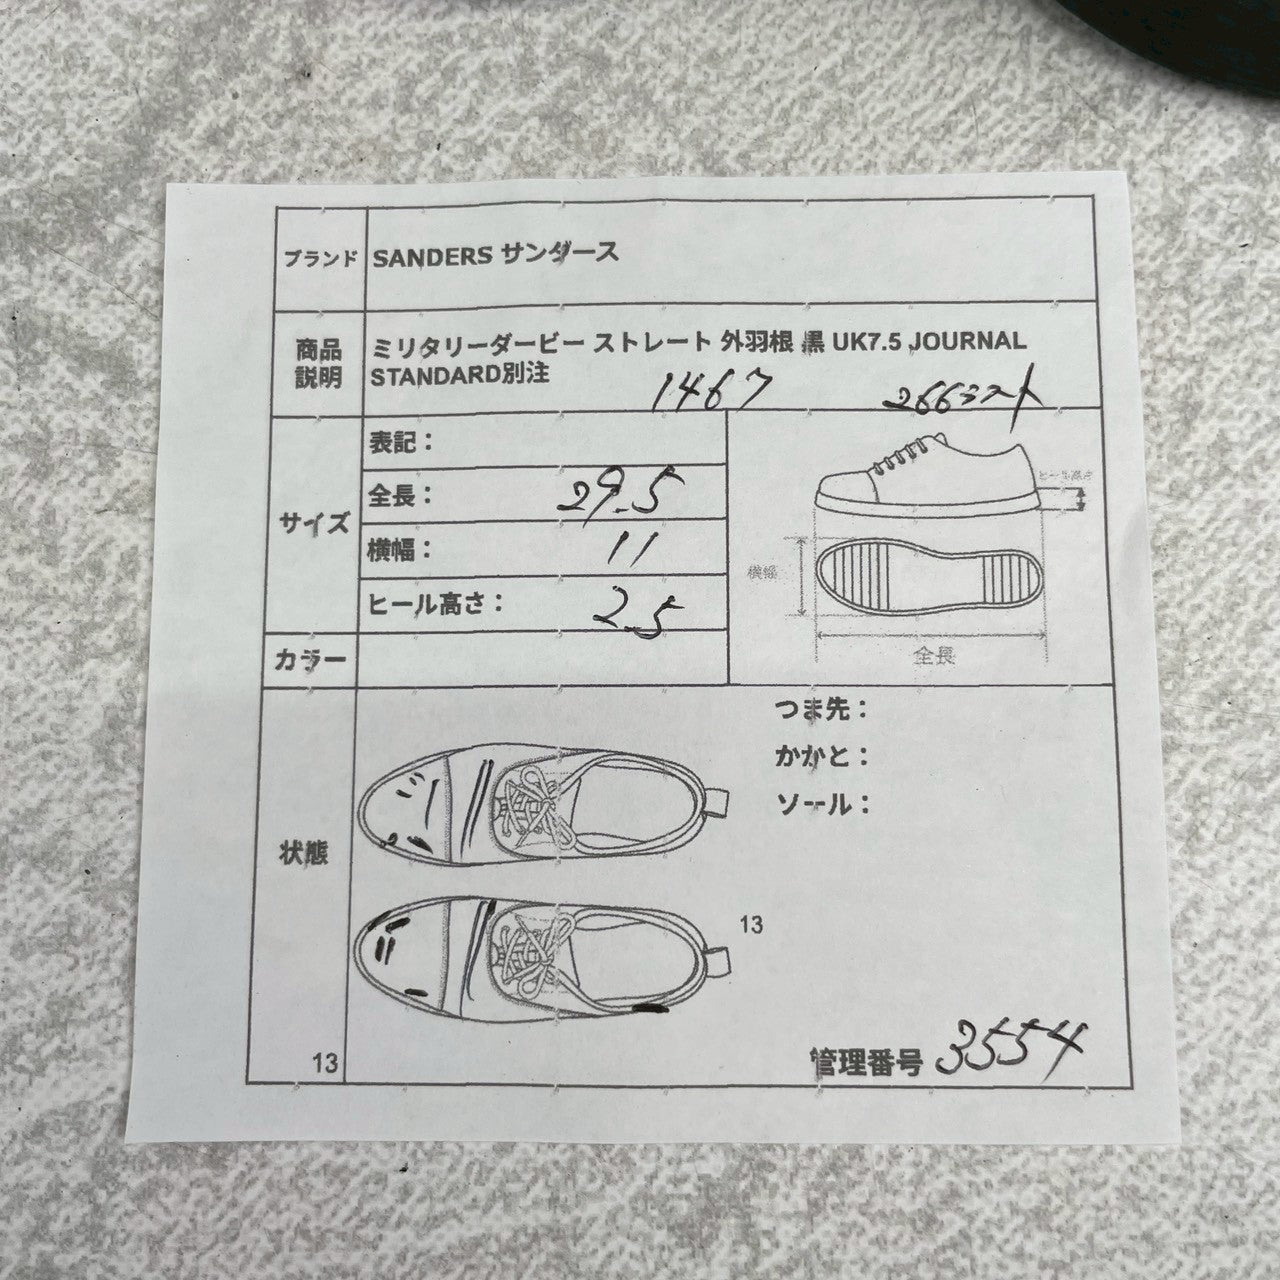 ブランド SANDERS サンダース
商品説明 ミリタリーダービー ストレート 外羽根 黒 UK7.5 JOURNAL
STANDARD別注
1467
サイズ
表記：
全長： 29.5
横幅： 11
ヒール高さ： 2.5
ヒール高さ
横幅
全長
カラー
状態
つま先：
かかと：
ソール：
13
13
管理番号 3554